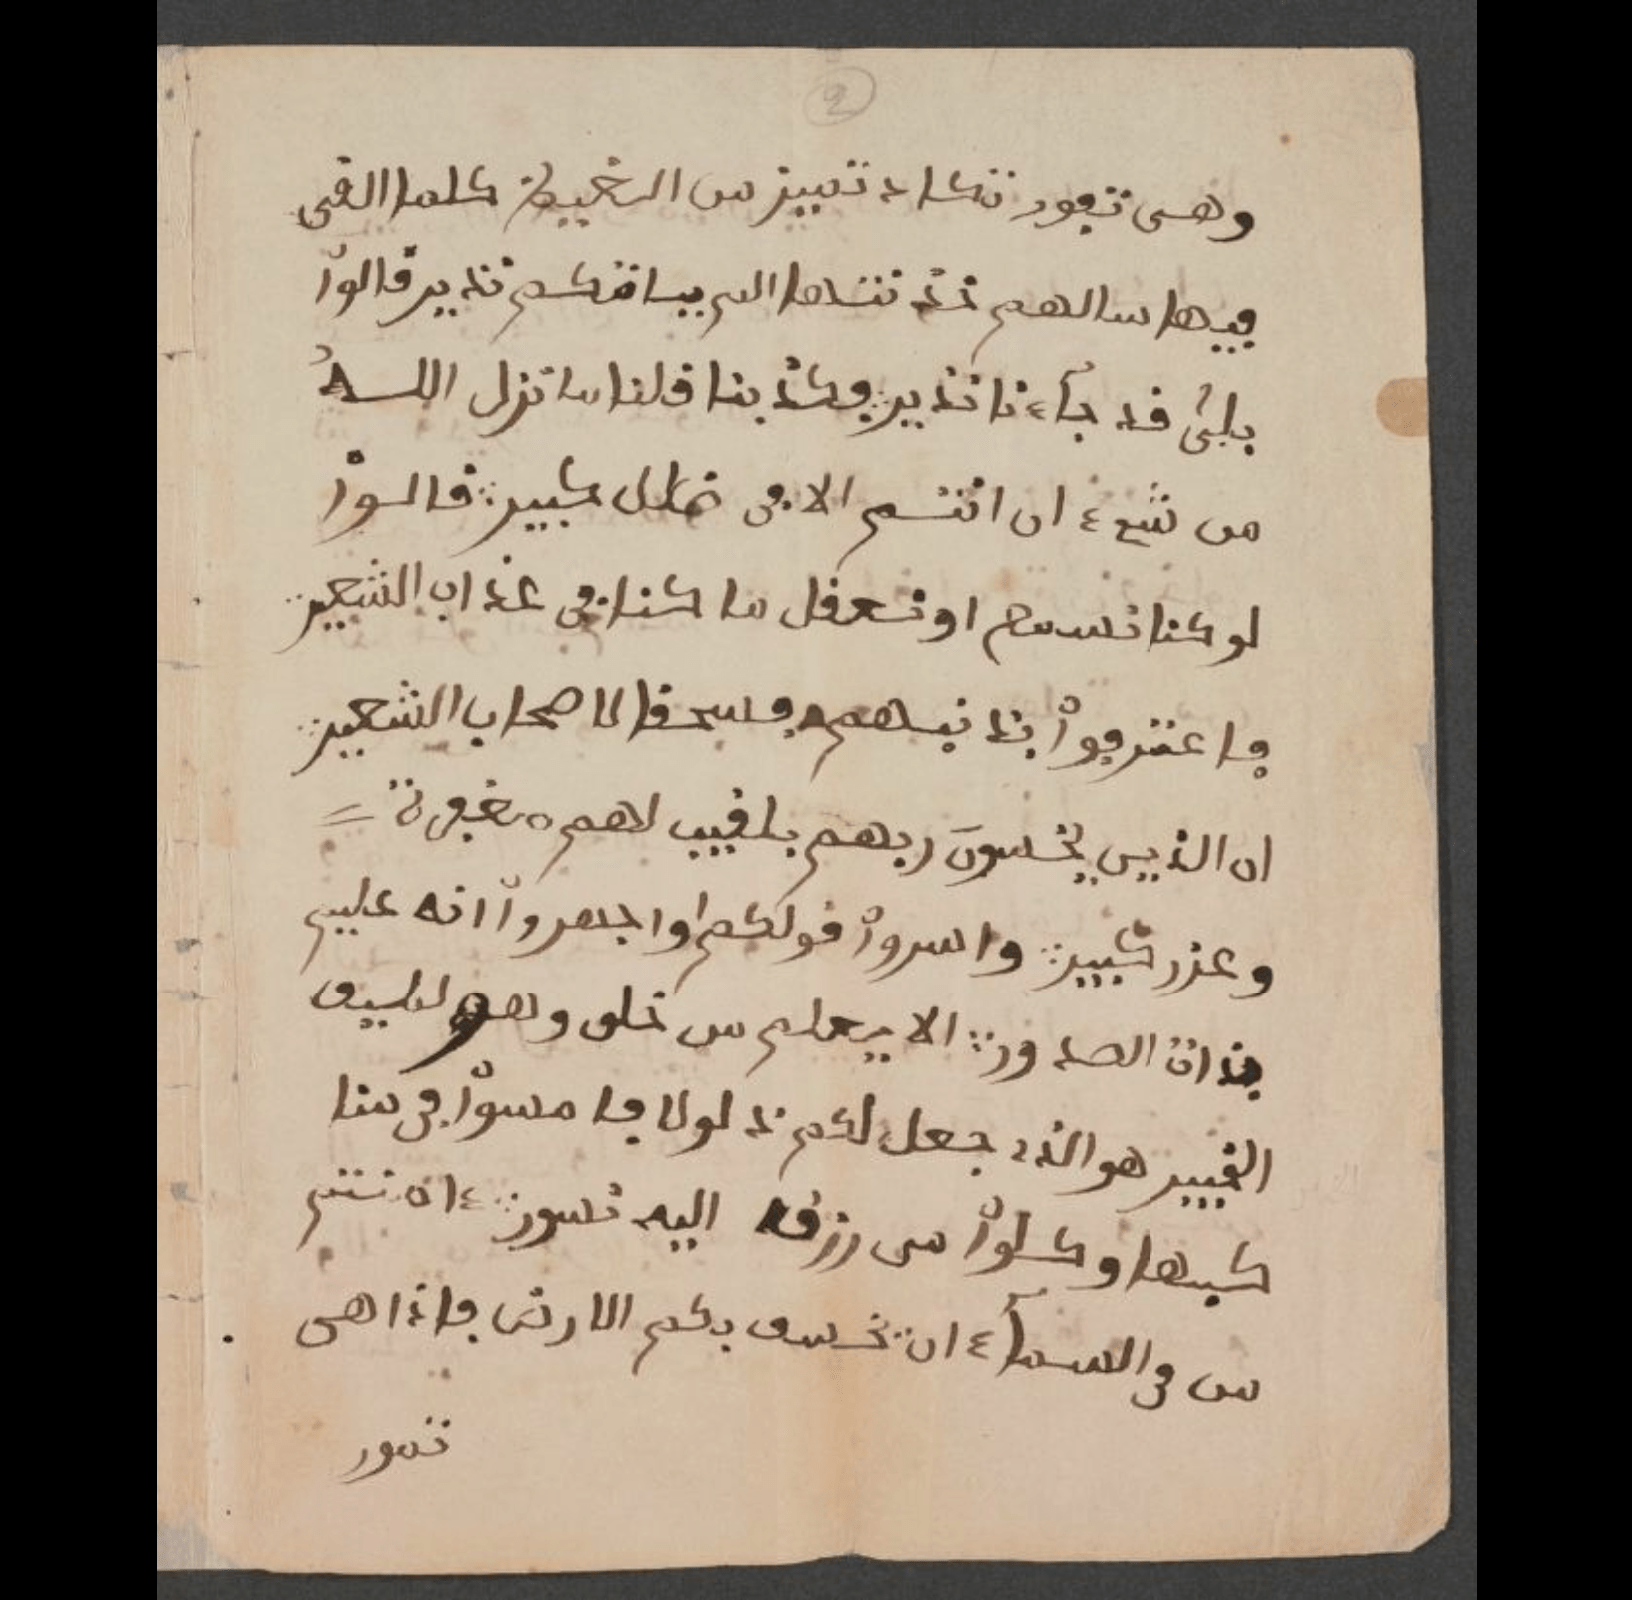 2
وهى تفور تكاد تميز من الغيظ كلما القى
فيها سالهم خزنتها الم ياتكم نذير قالوا
بلى قد جآءنا نذير فكذبنا وقلنا ما نزل الله
من شيء ان انتم الا فى ضلل كبير قالوا
لو كنا نسمع او نعقل ما كنا فى اصحاب الشعير
فاعترفوا بذنبهم فسحقا لاصحاب الشعير
ان الذين يخشون ربهم بلغيب لهم مغفرة
وعزر كبير واسروا قولكم او اجهروا انه عليم
بذات الصدور الا يعلم من خلق وهو لطيف
الخبير هو الذى جعل لكم ذلولا فامسوا فى منا
كبها وكلوا من رزقه اليه نسور ءان تتم
من فى السمآء ان نخسف بكم الارض فاذا هى
تمور